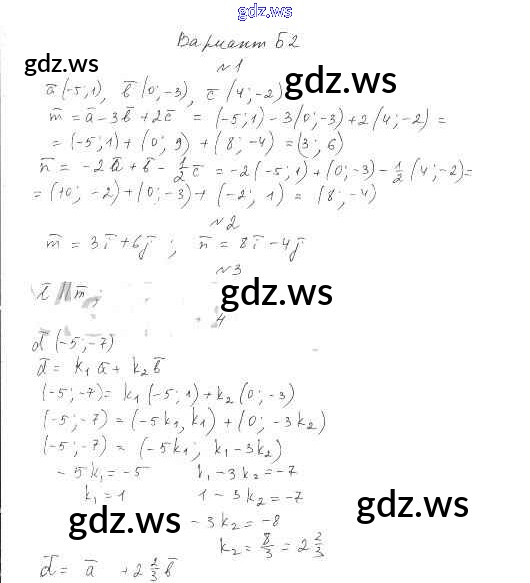 gdz.ws
Вариант Б2
gdz.ws
gdz.ws
№1
a̅(-5;1), b̅(0;-3), c̅(4;-2)
m̅ = a̅ - 3b̅ + 2c̅ = (-5;1) - 3(0;-3) + 2(4;-2) =
= (-5;1) + (0; 9) + (8; -4) = (3; 6)
n̅ = -2a̅ + b̅ - 1/2 c̅ = -2(-5;1) + (0;-3) - 1/2 (4;-2) =
= (10; -2) + (0;-3) + (-2; 1) = (8; -4)
№2
m̅ = 3i̅ + 6j̅ ; n̅ = 8i̅ - 4j̅
№3
gdz.ws
m̅ ;
4
d̅(-5;-7)
d̅ = k₁a̅ + k₂b̅
(-5;-7) = k₁(-5;1) + k₂(0;-3)
(-5;-7) = (-5k₁, k₁) + (0; -3k₂)
(-5;-7) = (-5k₁; k₁ - 3k₂)
-5k₁ = -5 k₁ - 3k₂ = -7
k₁ = 1 1 - 3k₂ = -7
gdz.ws
gdz.ws
-3k₂ = -8
k₂ = 8/3 = 2 2/3
d̅ = a̅ + 2 2/3 b̅